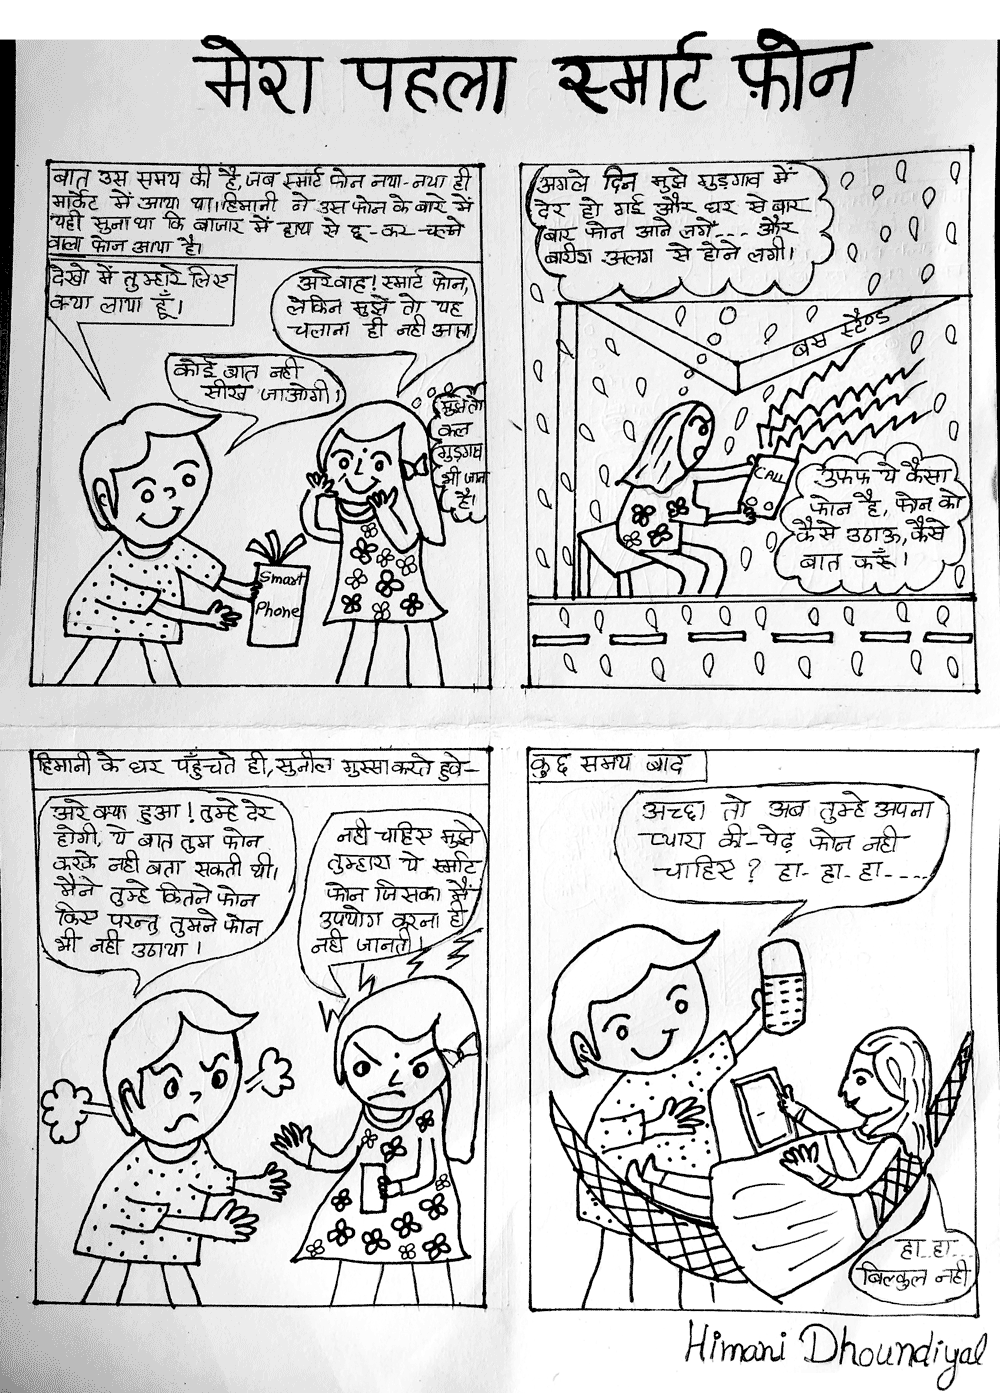 मेरा पहला स्मार्ट फ़ोन
बात उस समय की है, जब स्मार्ट फोन नया-नया ही
मार्केट में आया था। हिमानी ने उस फोन के बारे में
यही सुना था कि बाजार में हाथ से छू-कर-चलने
वाला फोन आया है।
देखो में तुम्हारे लिए
क्या लाया हूँ।
अरे वाह! स्मार्ट फोन,
लेकिन मुझे तो यह
चलाना ही नही आता
कोई बात नही
सीख जाओगी।
मुझे तो
कल
गुड़गाव
भी जाना
है।
Smart
Phone
अगले दिन मुझे गुड़गाव में
देर हो गई और घर से बार
बार फोन आने लगे... और
बारीश अलग से होने लगी।
बस स्टैण्ड
CALL
उफफ ये कैसा
फोन है, फोन को
कैसे उठाऊ, कैसे
बात करूँ।
हिमानी के घर पहुँचते ही, सुनील गुस्सा करते हुवे-
अरे क्या हुआ! तुम्हे देर
होगी, ये बात तुम फोन
करके नही बता सकती थी।
मैने तुम्हे कितने फोन
किए परन्तु तुमने फोन
भी नही उठाया।
नही चाहिए मुझे
तुम्हारा ये स्मार्ट
फोन जिसका मैं
उपयोग करना ही
नही जानती।
कुछ समय बाद
अच्छा तो अब तुम्हे अपना
प्यारा की-पेढ़ फोन नही
चाहिए? हा- हा- हा-....
हा..हा...
बिल्कुल नही
Himani Dhoundiyal